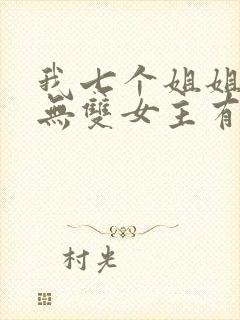 我七个姐姐
無雙女主有
村光